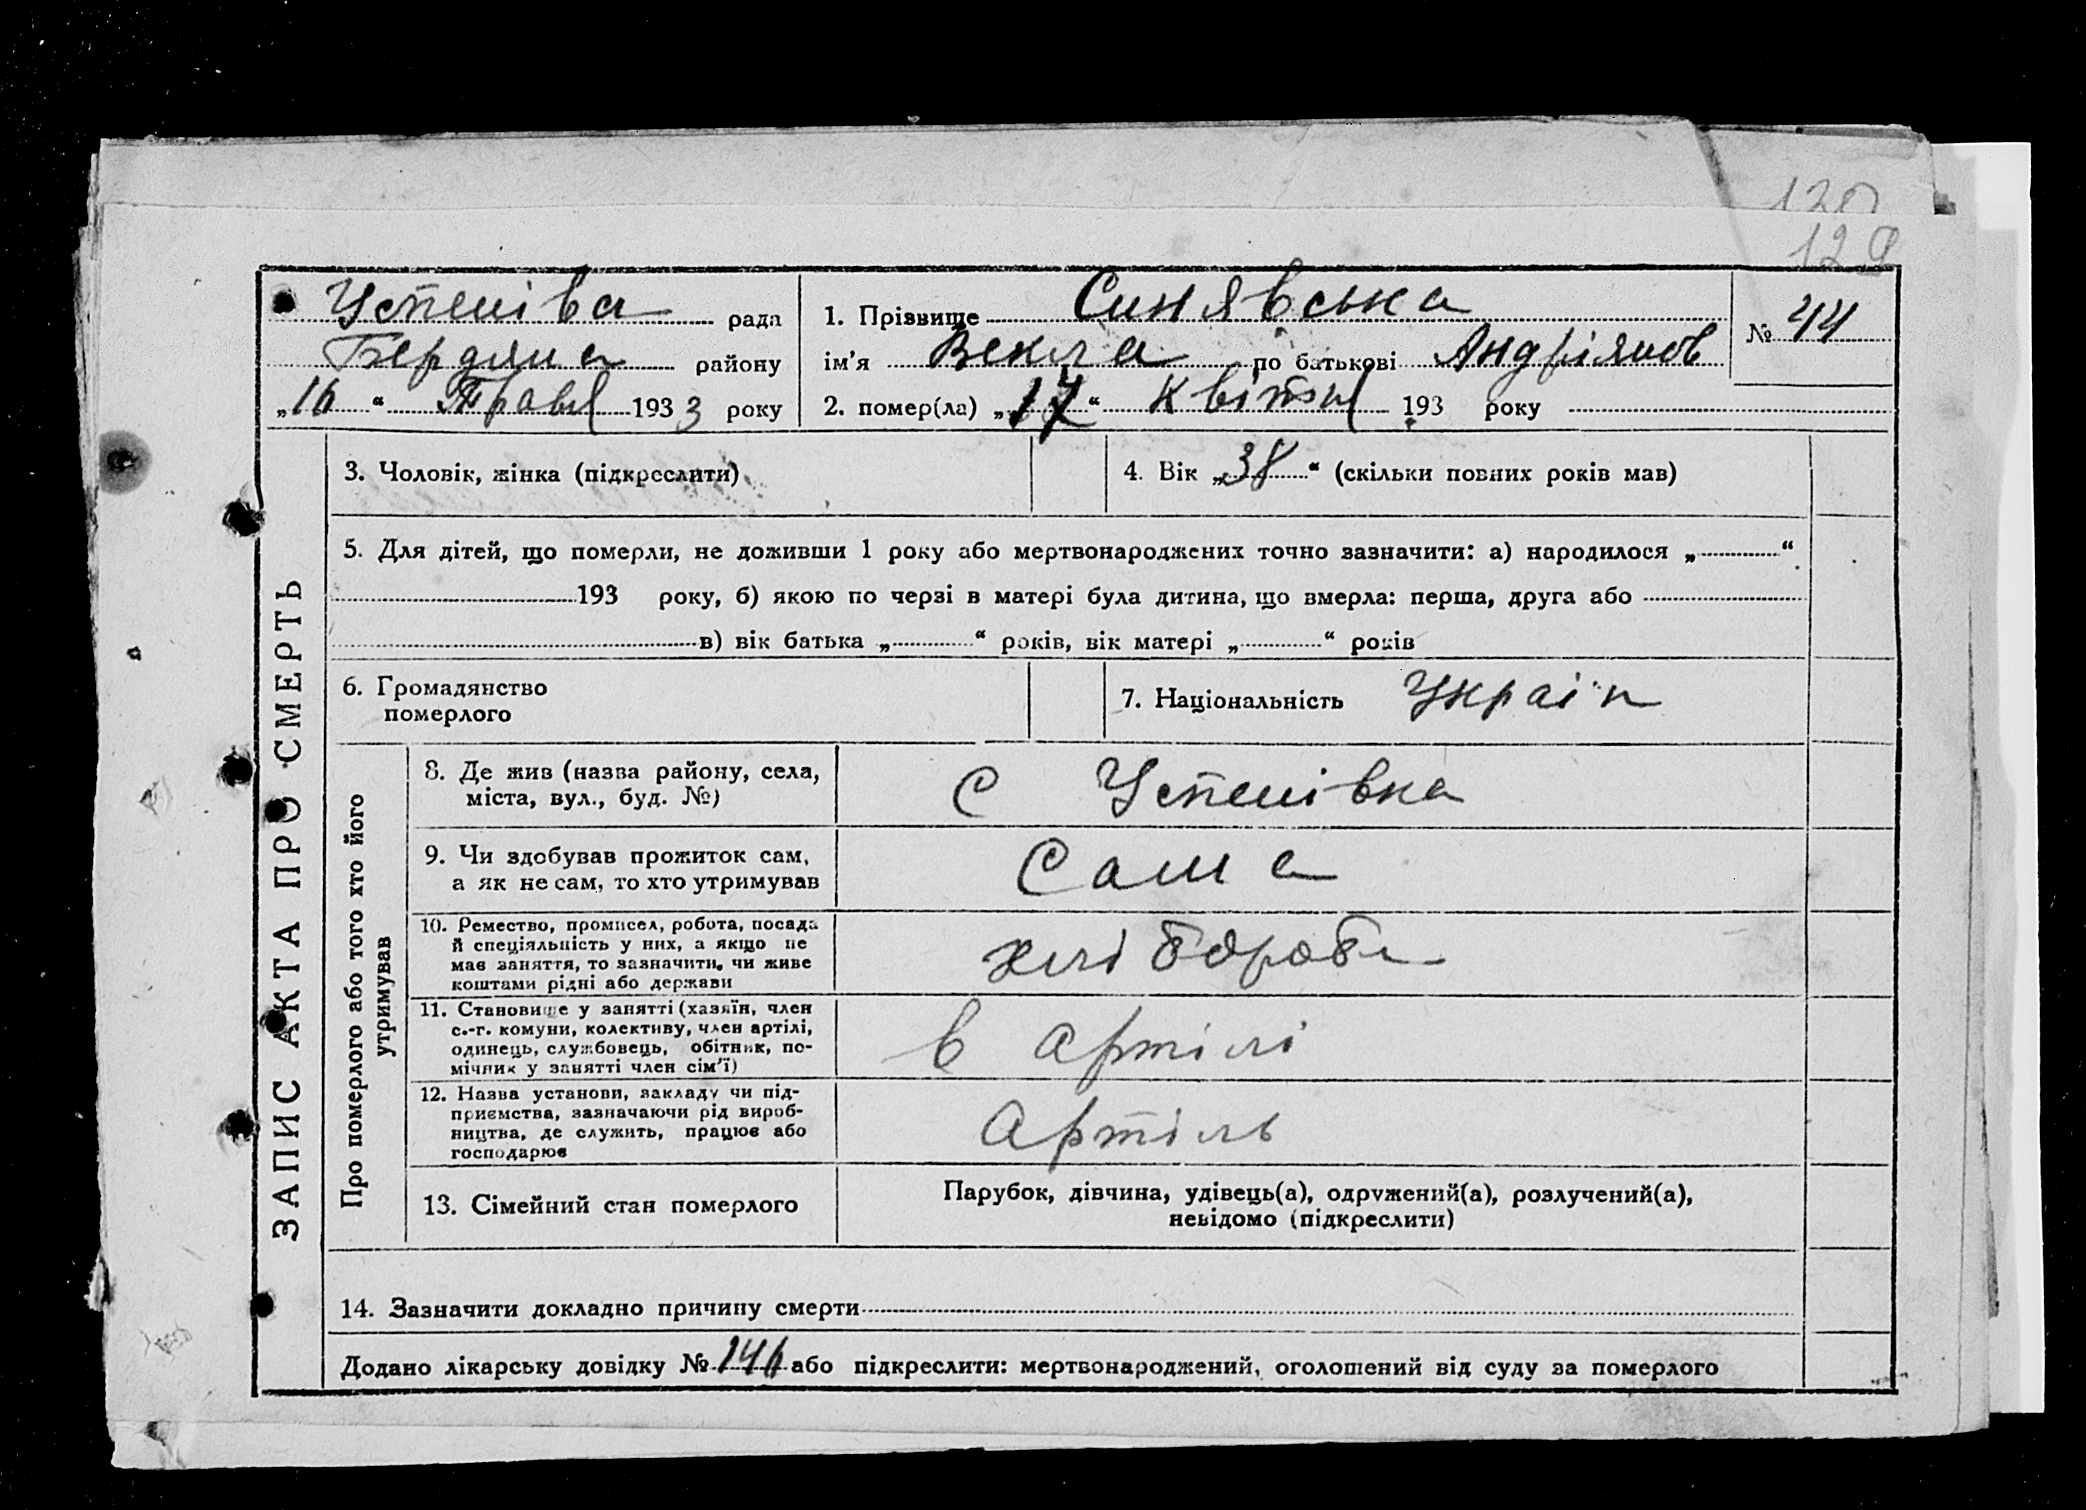 120
129
Успенівa рада
Бердянa району
„16“ Травл 1933 року
1. Прізвище Синявська
ім'я Векла по батькові Андріянов
2. помер(ла) „17“ Квітн 193 року
№ 44
ЗАПИС АКТА ПРО СМЕРТЬ
3. Чоловік, жінка (підкреслити)
4. Вік „38“ (скільки повних років мав)
5. Для дітей, що померли, не доживши 1 року або мертвонароджених точно зазначити: а) народилося „ “
193 року, б) якою по черзі в матері була дитина, що вмерла: перша, друга або
в) вік батька „ “ років, вік матері „ “ років
6. Громадянство
померлого
7. Національність Україн
Про померлого або того хто його
утримував
8. Де жив (назва району, села,
міста, вул., буд. №)
С Успенівка
9. Чи здобував прожиток сам,
а як не сам, то хто утримував
Сама
10. Ремество, промисел, робота, посада
й спеціяльність у них, а якщо не
має заняття, то зазначити, чи живе
коштами рідні або держави
хлібороб
11. Становище у занятті (хазяїн, член
с.-г. комуни, колективу, член артілі,
одинець, службовець, обітник, по-
мічник у занятті член сім'ї)
в артілі
12. Назва установи, закладу чи під-
приємства, зазначаючи рід вироб-
ництва, де служить, працює або
господарює
Артіль
13. Сімейний стан померлого
Парубок, дівчина, удівець(а), одружений(а), розлучений(а),
невідомо (підкреслити)
14. Зазначити докладно причину смерти
Додано лікарську довідку № 146 або підкреслити: мертвонароджений, оголошений від суду за померлого